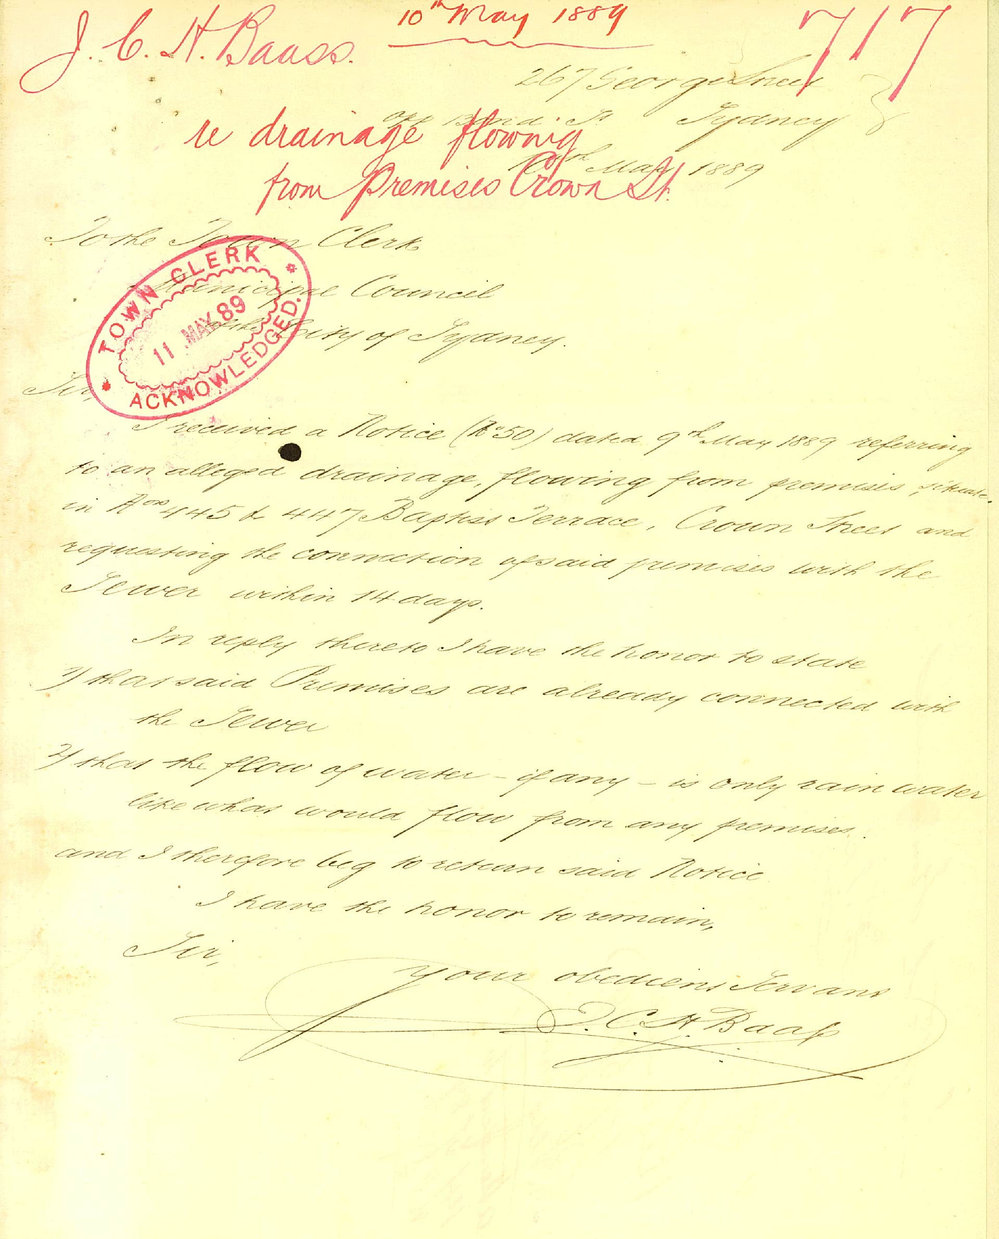 10th May 1889
717
J. C. H. Baass.
267 George Street
opp Bond St Sydney
10th May 1889
re drainage flowing
from Premises Crown St.
To the Town Clerk
Municipal Council
City of Sydney.
TOWN CLERK
11 MAY 89
ACKNOWLEDGED.
Sir,
I received a Notice (No 50) dated 9th May 1889 referring
to an alleged drainage, flowing from premises, situate
in Nos 445 & 447 Baptist Terrace, Crown Street and
requesting the connection of said premises with the
Sewer within 14 days.
In reply thereto I have the honor to state
1) that said Premises are already connected with
the Sewer
2) that the flow of water – if any – is only rain water
like what would flow from any premises.
and I therefore beg to return said Notice
I have the honor to remain,
Sir,
Your obedient Servant
J. C. H. Baass